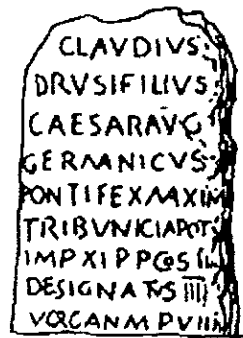 CLAVDIVS
DRVSIFILIVS
CAESARAVG
GERMANICVS
PONTIFEXMAXIM
TRIBVNICIAPOT
IMP XI P P COS III
DESIGNATVS IIII